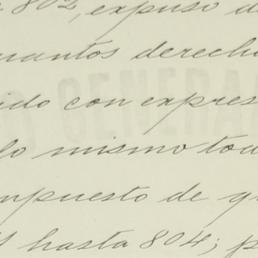 802, expuso d
uantos derecho
ido con expres
lo mismo tod
mpuesto de g
hasta 804; p